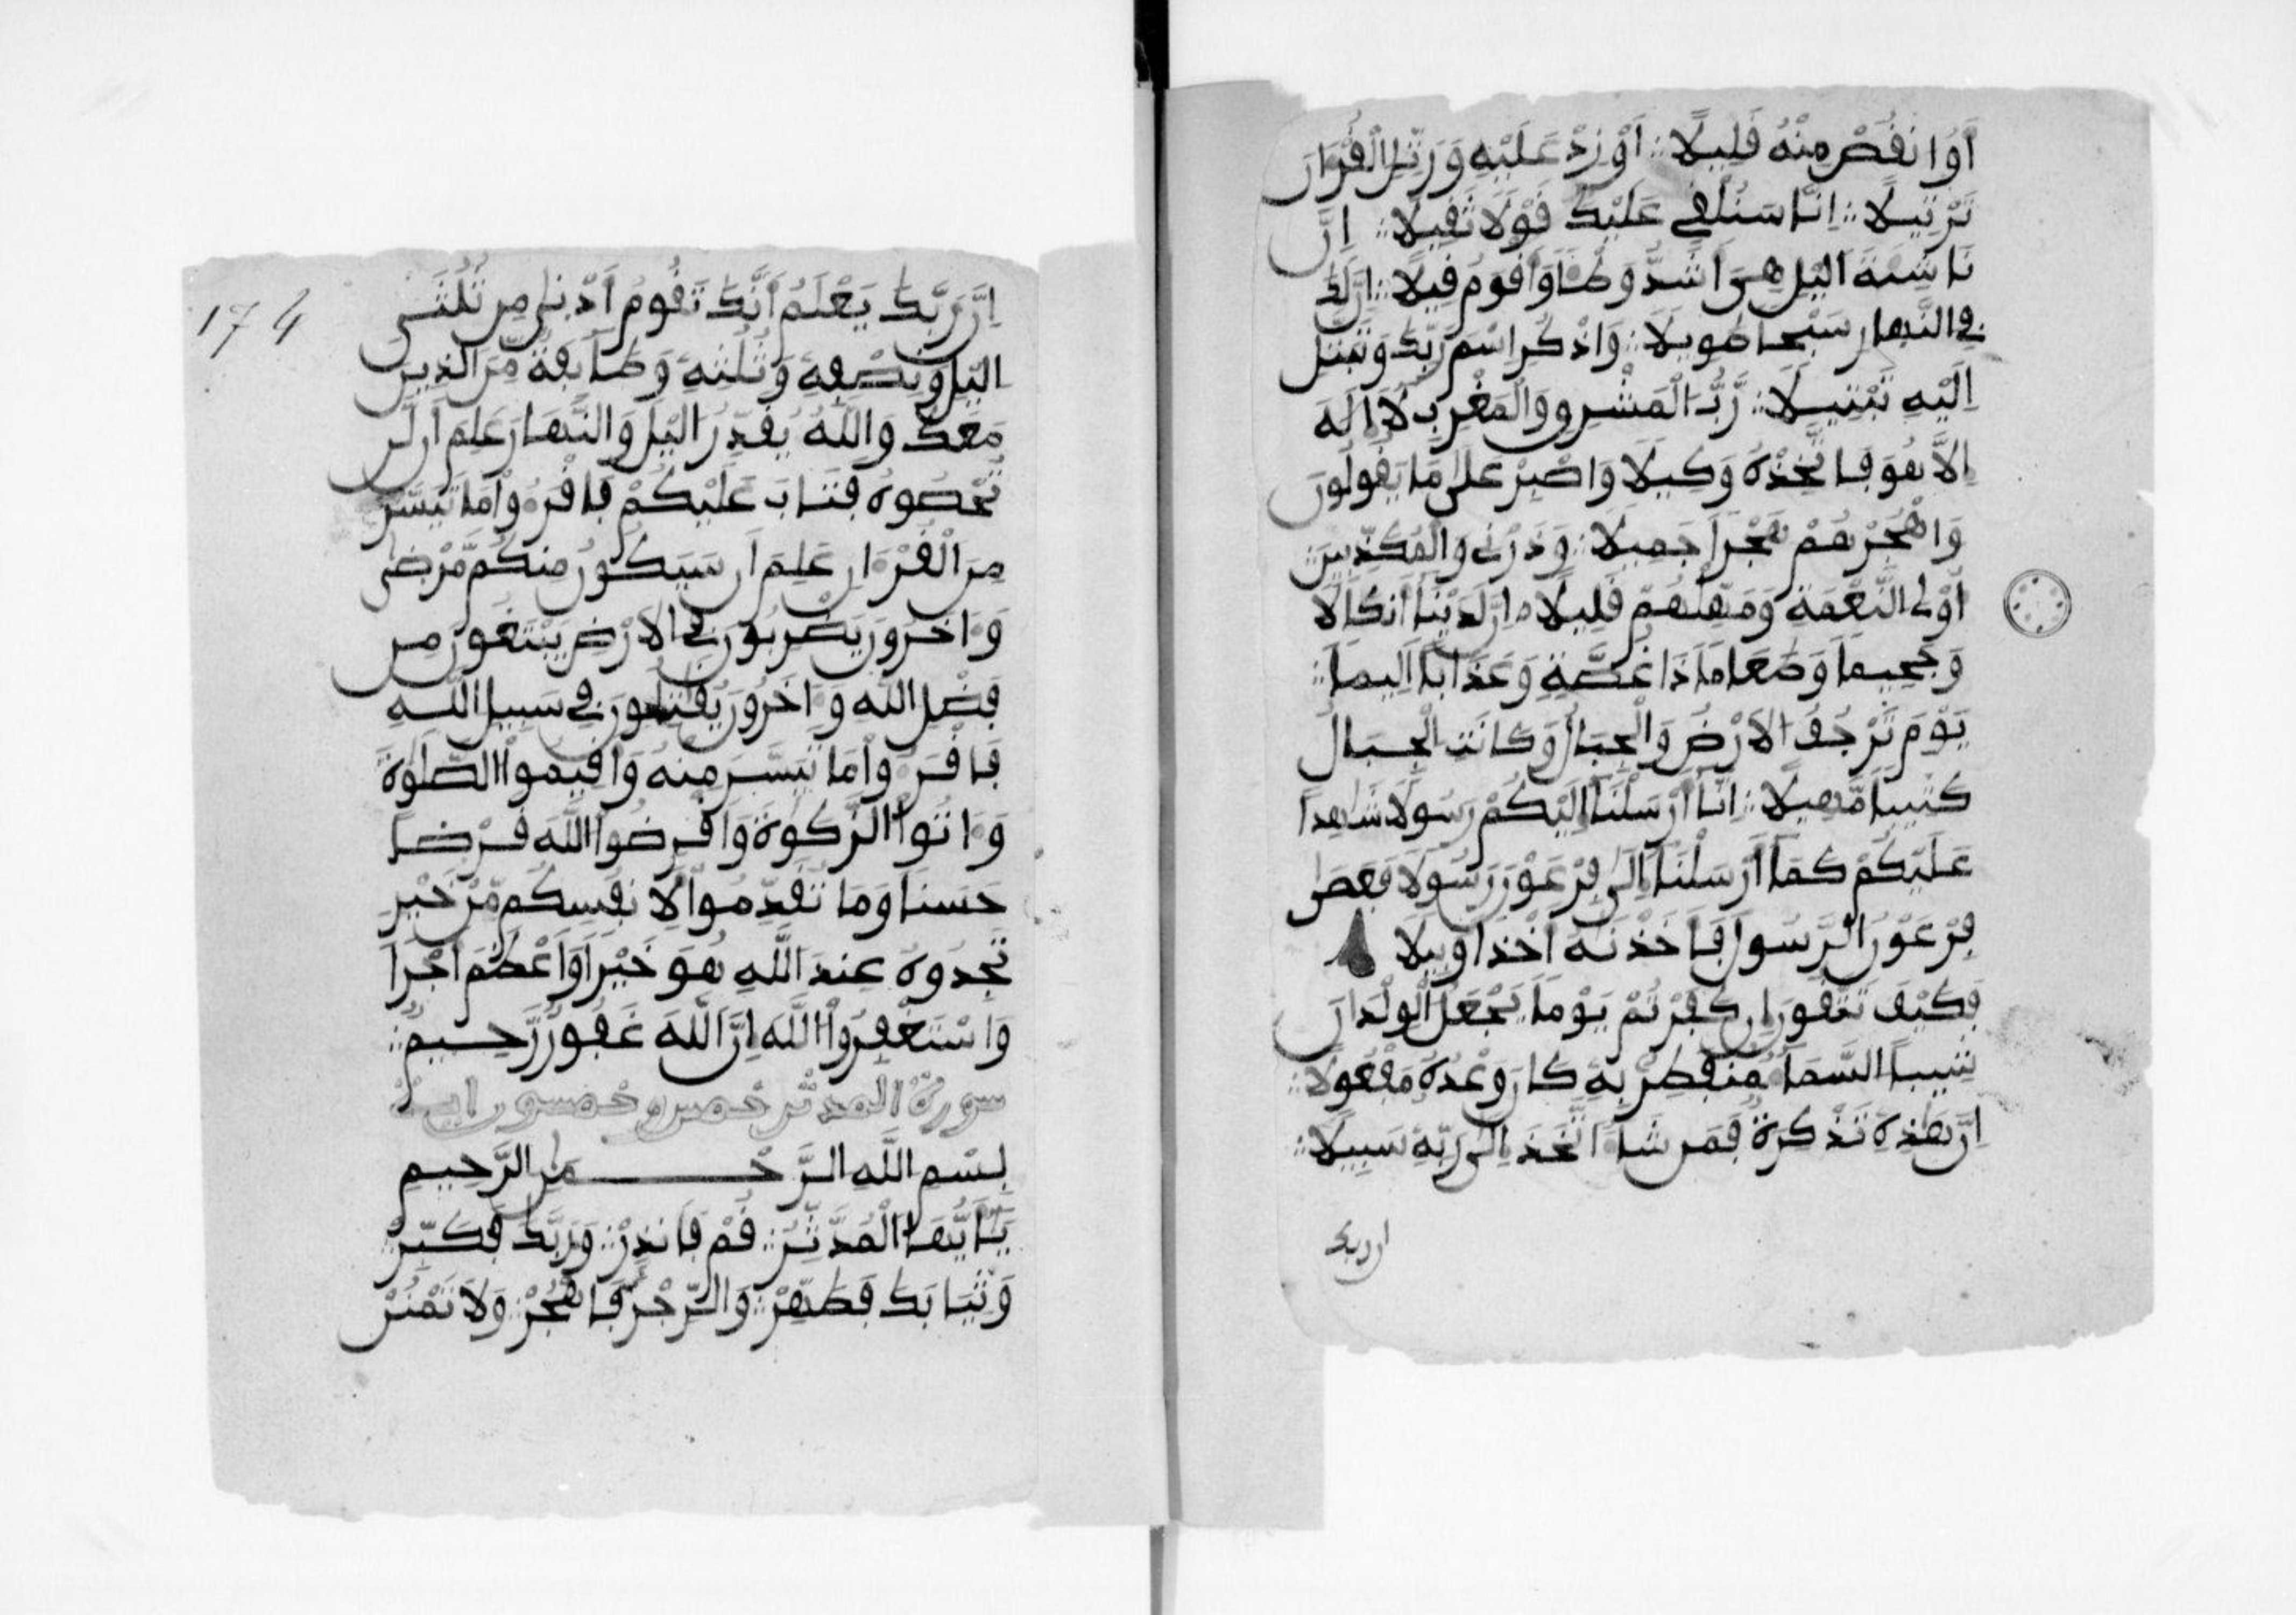 أَوُ اٰنفُصْ مِنْهُ فَلِيلًا ∴ أَوْ زِدْ عَلَيْهِ وَرَتِّلِ الْفُرْءَانَ
تَرْتِيلًا ∴ اِنَّا سَنُلْفِي عَلَيْكَ فَوْلًا ثَفِيلًا ∴ إِنَّ
نَاشِئَةَ اَلَيْلِ هِىَ أَشَدُّ وَطْـًٔا وَأَفْوَمُ فِيلًا ∴ اِنَّ لَكَ
فِى النَّهارِ سَبْحاً طَوِيلًا ∴ وَاذْكُرِ اِسْمَ رَبِّكَ وَتَبَتَّلِ
اِلَيْهِ تَبْتِيلًا ∴ رَّبُّ الْمَشْرِفِ وَالْمَغْرِبِ لَا إِلَهَ
اِلَّا هُوَ فَاتَّخِذْهُ وَكِيلًا وَاصْبِرْ عَلَىٰ مَا يَفُولُونَ
وَاهْجُرْهُمْ هَجْراً جَمِيلًا ∴ وَذَرْنِى وَالْمُكَذِّبِينَ ∴
أُوْلِى النَّعْمَةِ وَمَهِّلْهُمْ فَلِيلًا ∴ اِنَّ لَدَيْنَا أَنكَالًا
وَجَحِيماً وَطَعَاماً ذَا غُصَّةٍ وَعَذَاباً اَلِيماً ∴
يَوْمَ تَرْجُفُ الْاَرْضُ وَالْجِبَالُ وَكَانَتِ الْجِبَالُ
كَثِيباً مَّهِيلًا ∴ اِنَّا أَرْسَلْنَا إِلَيْكُمْ رَسُولًا شَٰهِداً
عَلَيْكُمْ كَمَا أَرْسَلْنَا إِلَىٰ فِرْعَوْنَ رَسُولًا فَعَصَىٰ
فِرْعَوْنُ الرَّسُولَ فَأَخَذْنَٰهُ أَخْذاً وَبِيلًا
فَكَيْفَ تَتَّفُونَ إِن كَفَرْتُمْ يَوْماً يَجْعَلُ الْوِلْدَانَ
شِيباً السَّمَاءُ مُنفَطِرٌ بِهِ كَانَ وَعْدُهُ مَفْعُولًا ∴
اِنَّ هَٰذِهِ تَذْكِرَةٌ فَمَن شَاءَ اتَّخَذَ إِلَىٰ رَبِّهِ سَبِيلًا ∴
ان ربك
174
اِنَّ رَبَّكَ يَعْلَمُ أَنَّكَ تَفُومُ أَدْنَىٰ مِن ثُلُثَىِ
اِلَيْلِ وَنِصْفِهِ وَثُلُثِهِ وَطَائِفَةٌ مِّنَ الَّذِينَ
مَعَكَ وَاللَّهُ يُفَدِّرُ الَيْلَ وَالنَّهَارَ عَلِمَ أَن لَّن
تُحْصُوهُ فَتَابَ عَلَيْكُمْ فَافْرَءُواْ مَا تَيَسَّرَ
مِنَ الْفُرْءَانِ عَلِمَ أَن سَيَكُونُ مِنكُم مَّرْضَىٰ
وَءَاخَرُونَ يَضْرِبُونَ فِى الْاَرْضِ يَبْتَغُونَ مِن
فَضْلِ اللَّهِ وَءَاخَرُونَ يُفَٰتِلُونَ فِى سَبِيلِ اللَّهِ
فَافْرَءُواْ مَا تَيَسَّرَ مِنْهُ وَأَفِيمُواْ الصَّلَوٰةَ
وَءَاتُواْ الزَّكَوٰةَ وَأَفْرِضُواْ اللَّهَ فَرْضاً
حَسَناً وَمَا تُفَدِّمُواْ لِأَنفُسِكُم مِّنْ خَيْرٍ
تَجِدُوهُ عِندَ اللَّهِ هُوَ خَيْراً وَأَعْظَمَ أَجْراً
وَاسْتَغْفِرُواْ اللَّهَ اِنَّ اللَّهَ غَفُورٌ رَّحِيمٌ ∴
سورة المدثر خمس وخمسون اية
بِسْمِ اللَّهِ الرَّحْمَٰنِ الرَّحِيمِ
يَٰأَيُّهَا الْمُدَّثِّرُ ∴ فُمْ فَأَنذِرْ ∴ وَرَبَّكَ فَكَبِّرْ ∴
وَثِيَابَكَ فَطَهِّرْ ∴ وَالرِّجْزَ فَاهْجُرْ ∴ وَلَا تَمْنُن